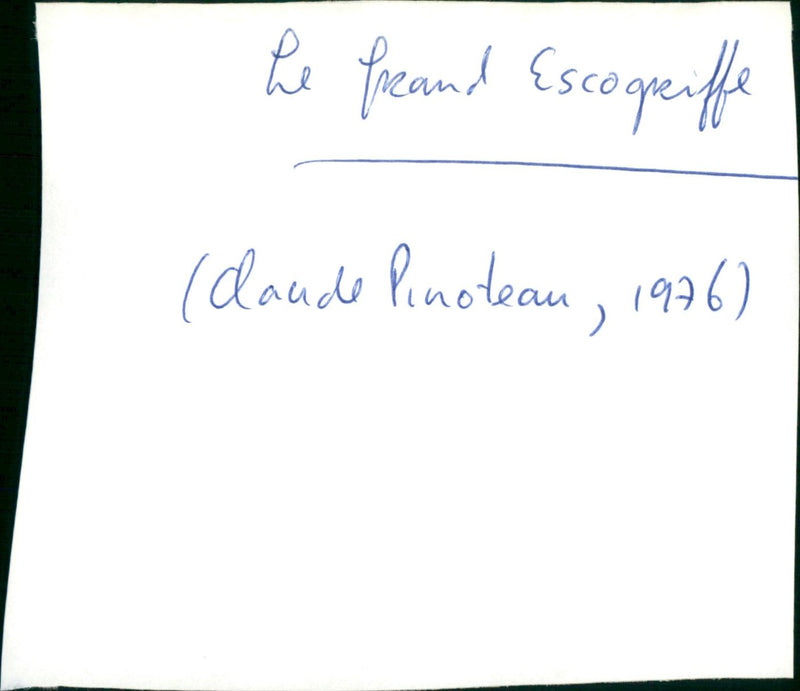 Le Grand Escogriffe
(Claude Pinoteau, 1976)